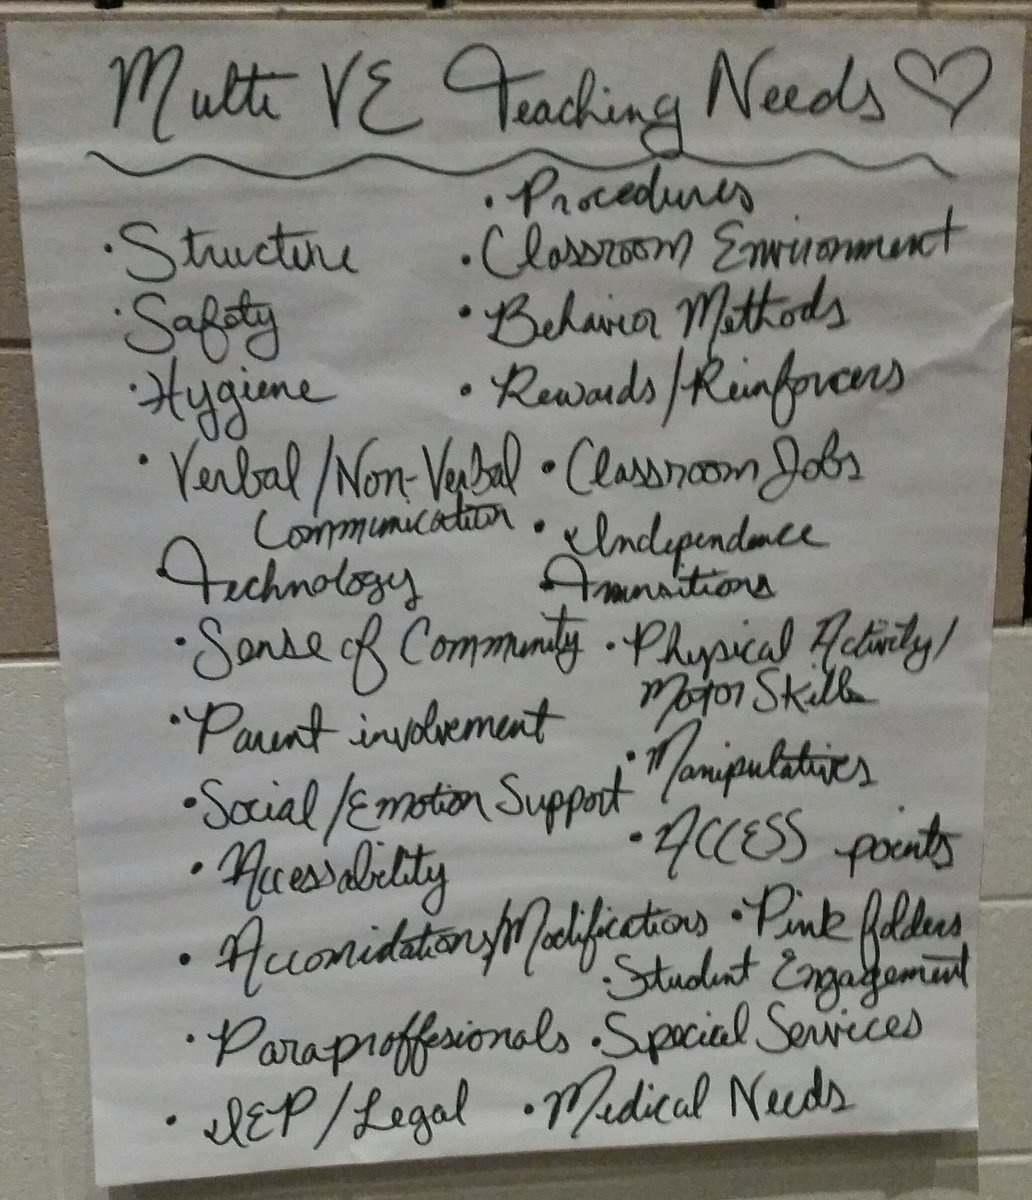 Multi VE Teaching Needs ♡
• Structure
• Safety
• Hygiene
• Verbal/Non-Verbal
Communication
• Technology
• Sense of Community
• Parent involvement
• Social/Emotion Support
• Accessability
• Accomidations/Modifications
• Paraproffesionals
• IEP/Legal
• Procedures
• Classroom Environment
• Behavior Methods
• Rewards/Reinforcers
• Classroom Jobs
• Independence
• Transitions
• Physical Activity/
Motor Skills
• Manipulatives
• ACCESS points
• Pink folders
• Student Engagement
• Special Services
• Medical Needs